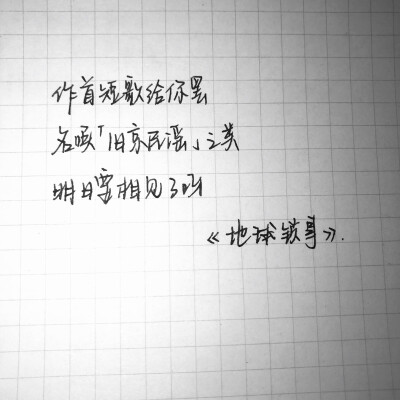 作首短歌给你罢
名唤「旧京民谣」之类
明日要相见了呀
《地球锁事》.